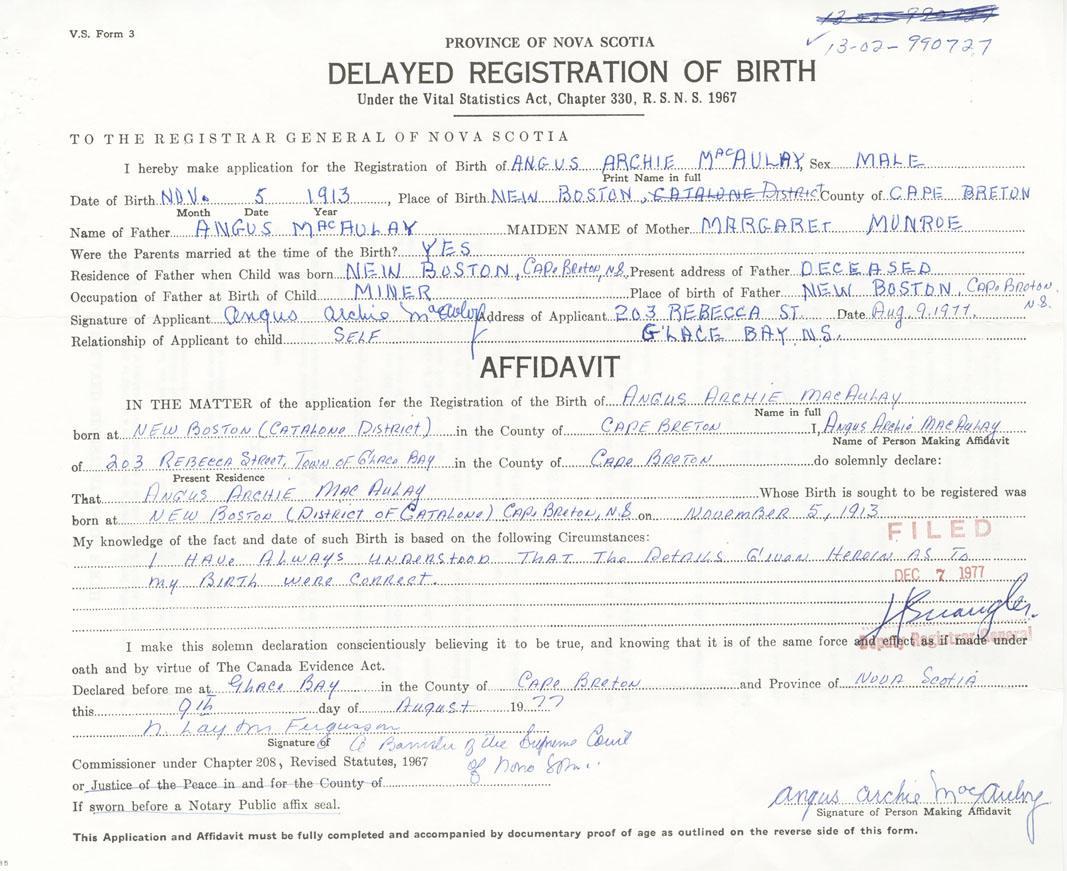 V.S. Form 3
13-02-990727
PROVINCE OF NOVA SCOTIA
DELAYED REGISTRATION OF BIRTH
Under the Vital Statistics Act, Chapter 330, R. S. N. S. 1967
TO THE REGISTRAR GENERAL OF NOVA SCOTIA
I hereby make application for the Registration of Birth of ANGUS ARCHIE MACAULAY, Sex MALE
Print Name in full
Date of Birth NOV. 5 1913, Place of Birth NEW BOSTON, CATALONE District County of CAPE BRETON
Month Date Year
Name of Father ANGUS MACAULAY MAIDEN NAME of Mother MARGARET MUNROE
Were the Parents married at the time of the Birth? YES
Residence of Father when Child was born NEW BOSTON, CAPE BRETON, N.S. Present address of Father DECEASED
Occupation of Father at Birth of Child MINER Place of birth of Father NEW BOSTON, CAPE BRETON, N.S.
Signature of Applicant Angus Archie MacAulay Address of Applicant 203 REBECCA ST. Date Aug. 9, 1977.
Relationship of Applicant to child SELF GLACE BAY N.S.
AFFIDAVIT
IN THE MATTER of the application for the Registration of the Birth of ANGUS ARCHIE MACAULAY
Name in full
born at NEW BOSTON (CATALONE DISTRICT) in the County of CAPE BRETON I, ANGUS ARCHIE MACAULAY
Name of Person Making Affidavit
of 203 REBECCA STREET, TOWN OF GLACE BAY in the County of CAPE BRETON do solemnly declare:
Present Residence
That ANGUS ARCHIE MACAULAY Whose Birth is sought to be registered was
born at NEW BOSTON (DISTRICT OF CATALONE) CAPE BRETON, N.S. on NOVEMBER 5, 1913
My knowledge of the fact and date of such Birth is based on the following Circumstances:
FILED
I HAVE ALWAYS UNDERSTOOD THAT THE DETAILS GIVEN HEREIN AS TO
MY BIRTH WERE CORRECT.
DEC 7 1977
Deputy Registrar General
I make this solemn declaration conscientiously believing it to be true, and knowing that it is of the same force and effect as if made under
oath and by virtue of The Canada Evidence Act.
Declared before me at GLACE BAY in the County of CAPE BRETON and Province of NOVA SCOTIA
this 9th day of AUGUST 1977
N. Layton Fergusson
Signature of A Barrister of the Supreme Court
of Nova Scotia
Commissioner under Chapter 208, Revised Statutes, 1967
or Justice of the Peace in and for the County of
If sworn before a Notary Public affix seal.
Angus Archie MacAulay
Signature of Person Making Affidavit
This Application and Affidavit must be fully completed and accompanied by documentary proof of age as outlined on the reverse side of this form.